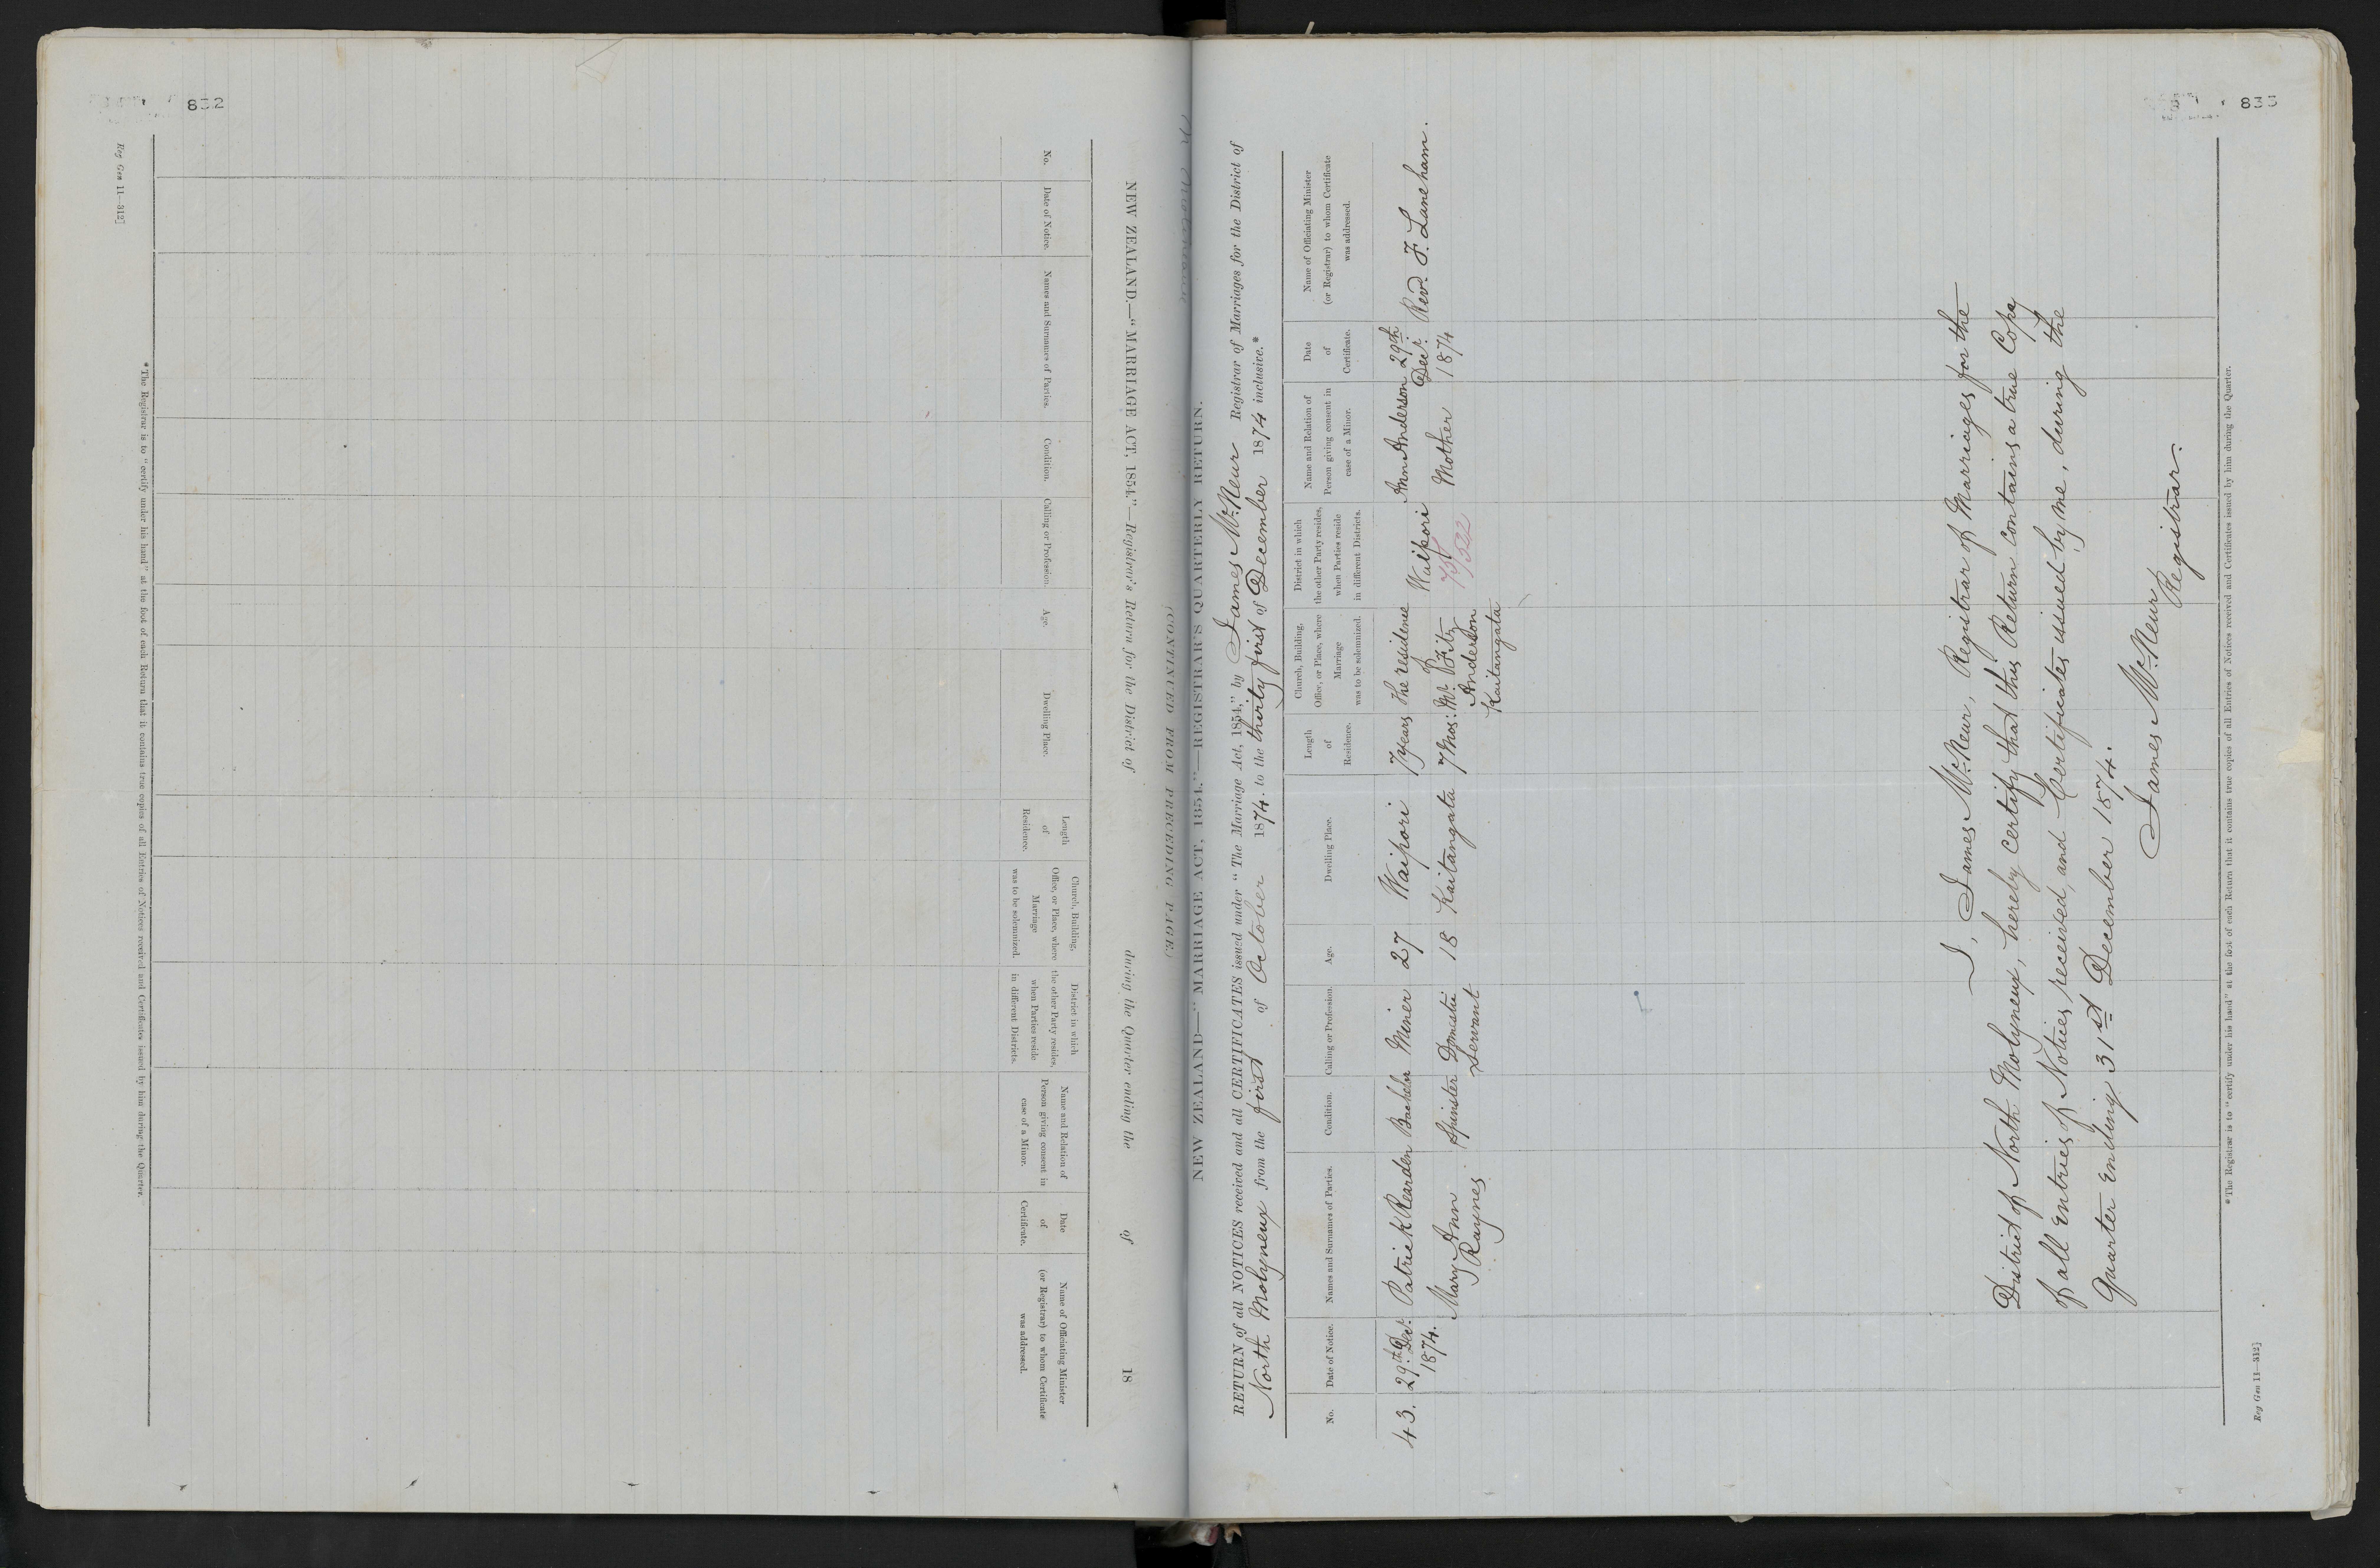 832
Reg Gen 11—312]
NEW ZEALAND.—"MARRIAGE ACT, 1854."—Registrar's Return for the District of during the Quarter ending the of 18
(CONTINUED FROM PRECEDING PAGE.)
No.
Date of Notice.
Names and Surnames of Parties.
Condition.
Calling or Profession.
Age.
Dwelling Place.
Length
of
Residence.
Church, Building,
Office, or Place, where
Marriage
was to be solemnized.
District in which
the other Party resides,
when Parties reside
in different Districts.
Name and Relation of
Person giving consent in
case of a Minor.
Date
of
Certificate.
Name of Officiating Minister
(or Registrar) to whom Certificate
was addressed.
* The Registrar is to "certify under his hand" at the foot of each Return that it contains true copies of all Entries of Notices received and Certificates issued by him during the Quarter.
NEW ZEALAND—"MARRIAGE ACT, 1854."—REGISTRAR'S QUARTERLY RETURN.
RETURN of all NOTICES received and all CERTIFICATES issued under "The Marriage Act, 1854," by James McNeur Registrar of Marriages for the District of
North Molyneux from the first of October 1874. to the thirty first of December 1874 inclusive.*
No.
Date of Notice.
Names and Surnames of Parties.
Condition.
Calling or Profession.
Age.
Dwelling Place.
Length
of
Residence.
Church, Building,
Office, or Place, where
Marriage
was to be solemnized.
District in which
the other Party resides,
when Parties reside
in different Districts.
Name and Relation of
Person giving consent in
case of a Minor.
Date
of
Certificate.
Name of Officiating Minister
(or Registrar) to whom Certificate
was addressed.
43. 29th Decr. Patrick Rearden Bachelor Miner 27 Waipori 7 years the residence Waipori Ann Anderson 29th
1874. Mary Ann Spinster Domestic 18 Kaitangata 7 Mos: Mr. Fitz Mother Decr. Rev. F. Laneham.
Raynes Servant Anderson 1874
Kaitangata
I, James McNeur, Registrar of Marriages for the
District of North Molyneux, hereby certify that this Return contains a true Copy
of all Entries of Notices received, and Certificates issued by me, during the
Quarter Ending 31st December 1874.
James McNeur
Registrar.
* The Registrar is to "certify under his hand" at the foot of each Return that it contains true copies of all Entries of Notices received and Certificates issued by him during the Quarter.
Reg Gen 11—312]